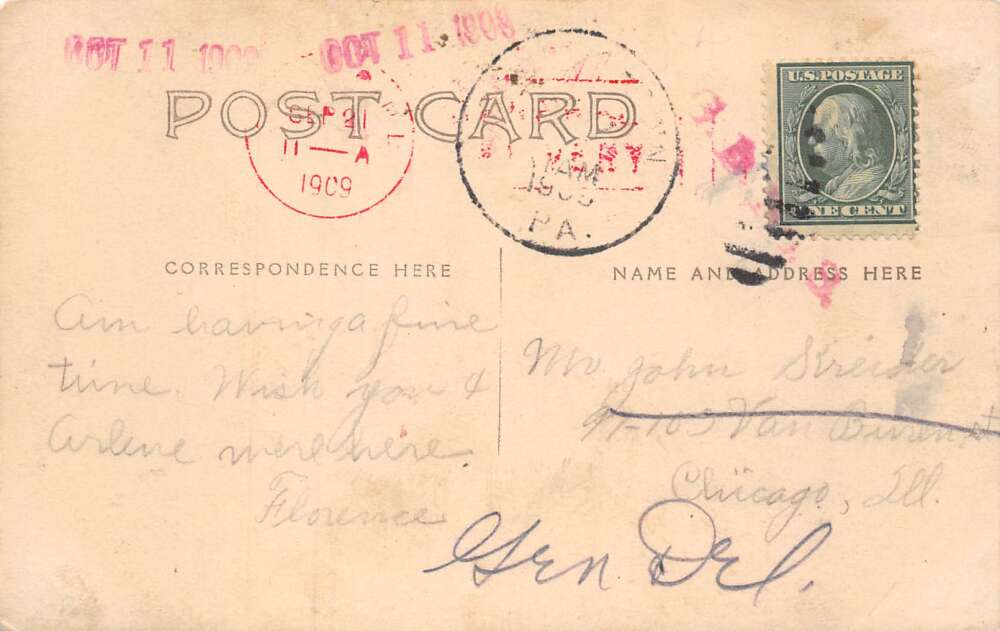 OCT 11 1909 OCT 11 1909
POST CARD
SEP 21
11—A
1909
AM
1909
PA.
U.S. POSTAGE
ONE CENT
CORRESPONDENCE HERE
NAME AND ADDRESS HERE
Am having a fine
time. Wish you &
Arlene were here
Florence
Mr John Streider
91-103 Van Buren st
Chicago, Ill.
Gen Del.